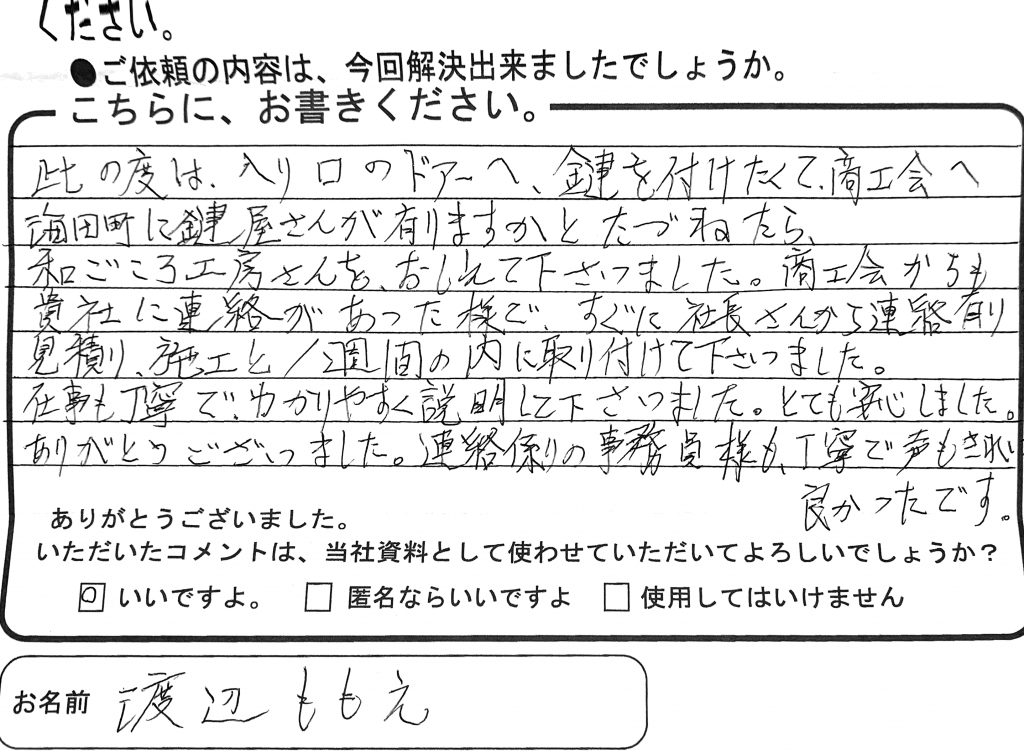 ください。
●ご依頼の内容は、今回解決出来ましたでしょうか。
こちらに、お書きください。
此の度は、入り口のドアーへ、鍵を付けたくて、商工会へ
海田町に鍵屋さんが有りますかとたづねたら、
和ごころ工房さんを、おしえて下さつました。商工会からも
貴社に連絡があった様で、すぐに社長さんから連絡有り
見積り、施工と1週間の内に取り付けて下さつました。
仕事も丁寧で、わかりやすく説明して下さつました。とても安心しました。
ありがとうございました。連絡係りの事務員様も、丁寧で声もきれい
良かったです。
ありがとうございました。
いただいたコメントは、当社資料として使わせていただいてよろしいでしょうか？
いいですよ。 匿名ならいいですよ 使用してはいけません
お名前 渡辺ももえ